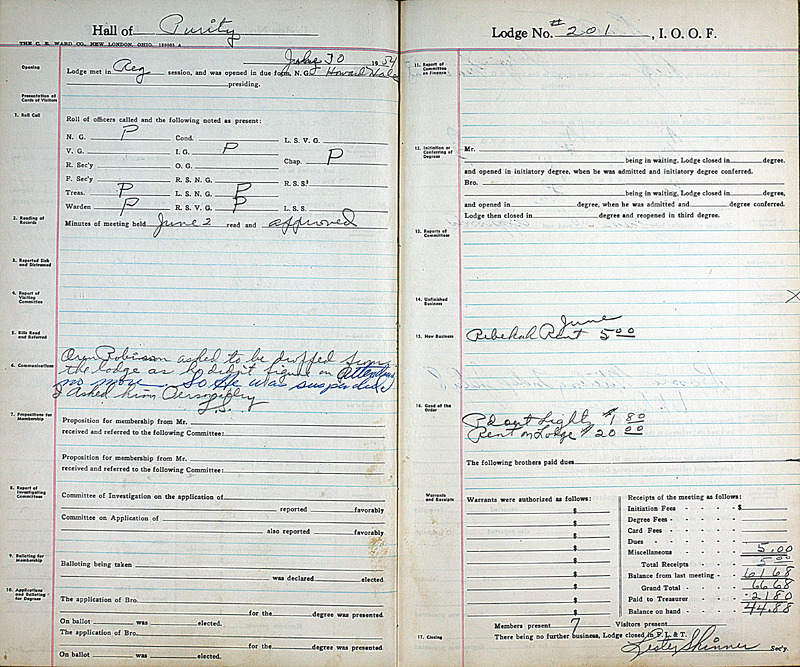 Hall of Purity
THE C. E. WARD CO., NEW LONDON, OHIO.
July 30 1954
Opening
Lodge met in Reg session, and was opened in due form, N.G. Howard
presiding.
Presentation of Cards of Visitors
1. Roll Call
Roll of officers called and the following noted as present:
N. G. P Cond. L. S. V. G.
V. G. I. G. P Chap. P
R. Sec'y O. G.
F. Sec'y R. S. N. G. R. S. S.
Treas. P L. S. N. G. P
Warden P R. S. V. G. P L. S. S.
2. Reading of Records
Minutes of meeting held June 2 read and approved
3. Reported Sick and Distressed
4. Report of Visiting Committee
5. Bills Read and Referred
6. Communications
Oren Robinson asked to be dropped from
the Lodge as he didn't figure on Attending
no more. So He was suspended
I Asked him Personaly
L.S.
7. Propositions for Membership
Proposition for membership from Mr.
received and referred to the following Committee:
Proposition for membership from Mr.
received and referred to the following Committee:
8. Report of Investigating Committees
Committee of Investigation on the application of
reported favorably
Committee on Application of
also reported favorably
9. Balloting for Membership
Balloting being taken
was declared elected.
10. Applications and Balloting for Degrees
The application of Bro.
for the degree was presented.
On ballot was elected.
The application of Bro.
for the degree was presented.
On ballot was elected.
Lodge No. #201, I. O. O. F.
11. Report of Committee on Finance
12. Initiation or Conferring of Degrees
Mr.
being in waiting. Lodge closed in degree.
and opened in initiatory degree, when he was admitted and initiatory degree conferred.
Bro.
being in waiting, Lodge closed in degree,
and opened in degree, when he was admitted and degree conferred.
Lodge then closed in degree and reopened in third degree.
13. Reports of Committees
14. Unfinished Business
X
15. New Business
June
Rebekah Rent 5.00
16. Good of the Order
Pd out Light $1.80
Rent on Lodge $20.00
The following brothers paid dues
Warrants and Receipts
Warrants were authorized as follows:
$
$
$
$
$
$
$
$
$
Receipts of the meeting as follows:
Initiation Fees $
Degree Fees
Card Fees
Dues
Miscellaneous 5.00
Total Receipts 5.00
Balance from last meeting 61.68
Grand Total 66.68
Paid to Treasurer 21.80
Balance on hand 44.88
Members present 7 Visitors present
17. Closing
There being no further business, Lodge closed in F. L. & T.
Lester Skinner Sec'y.